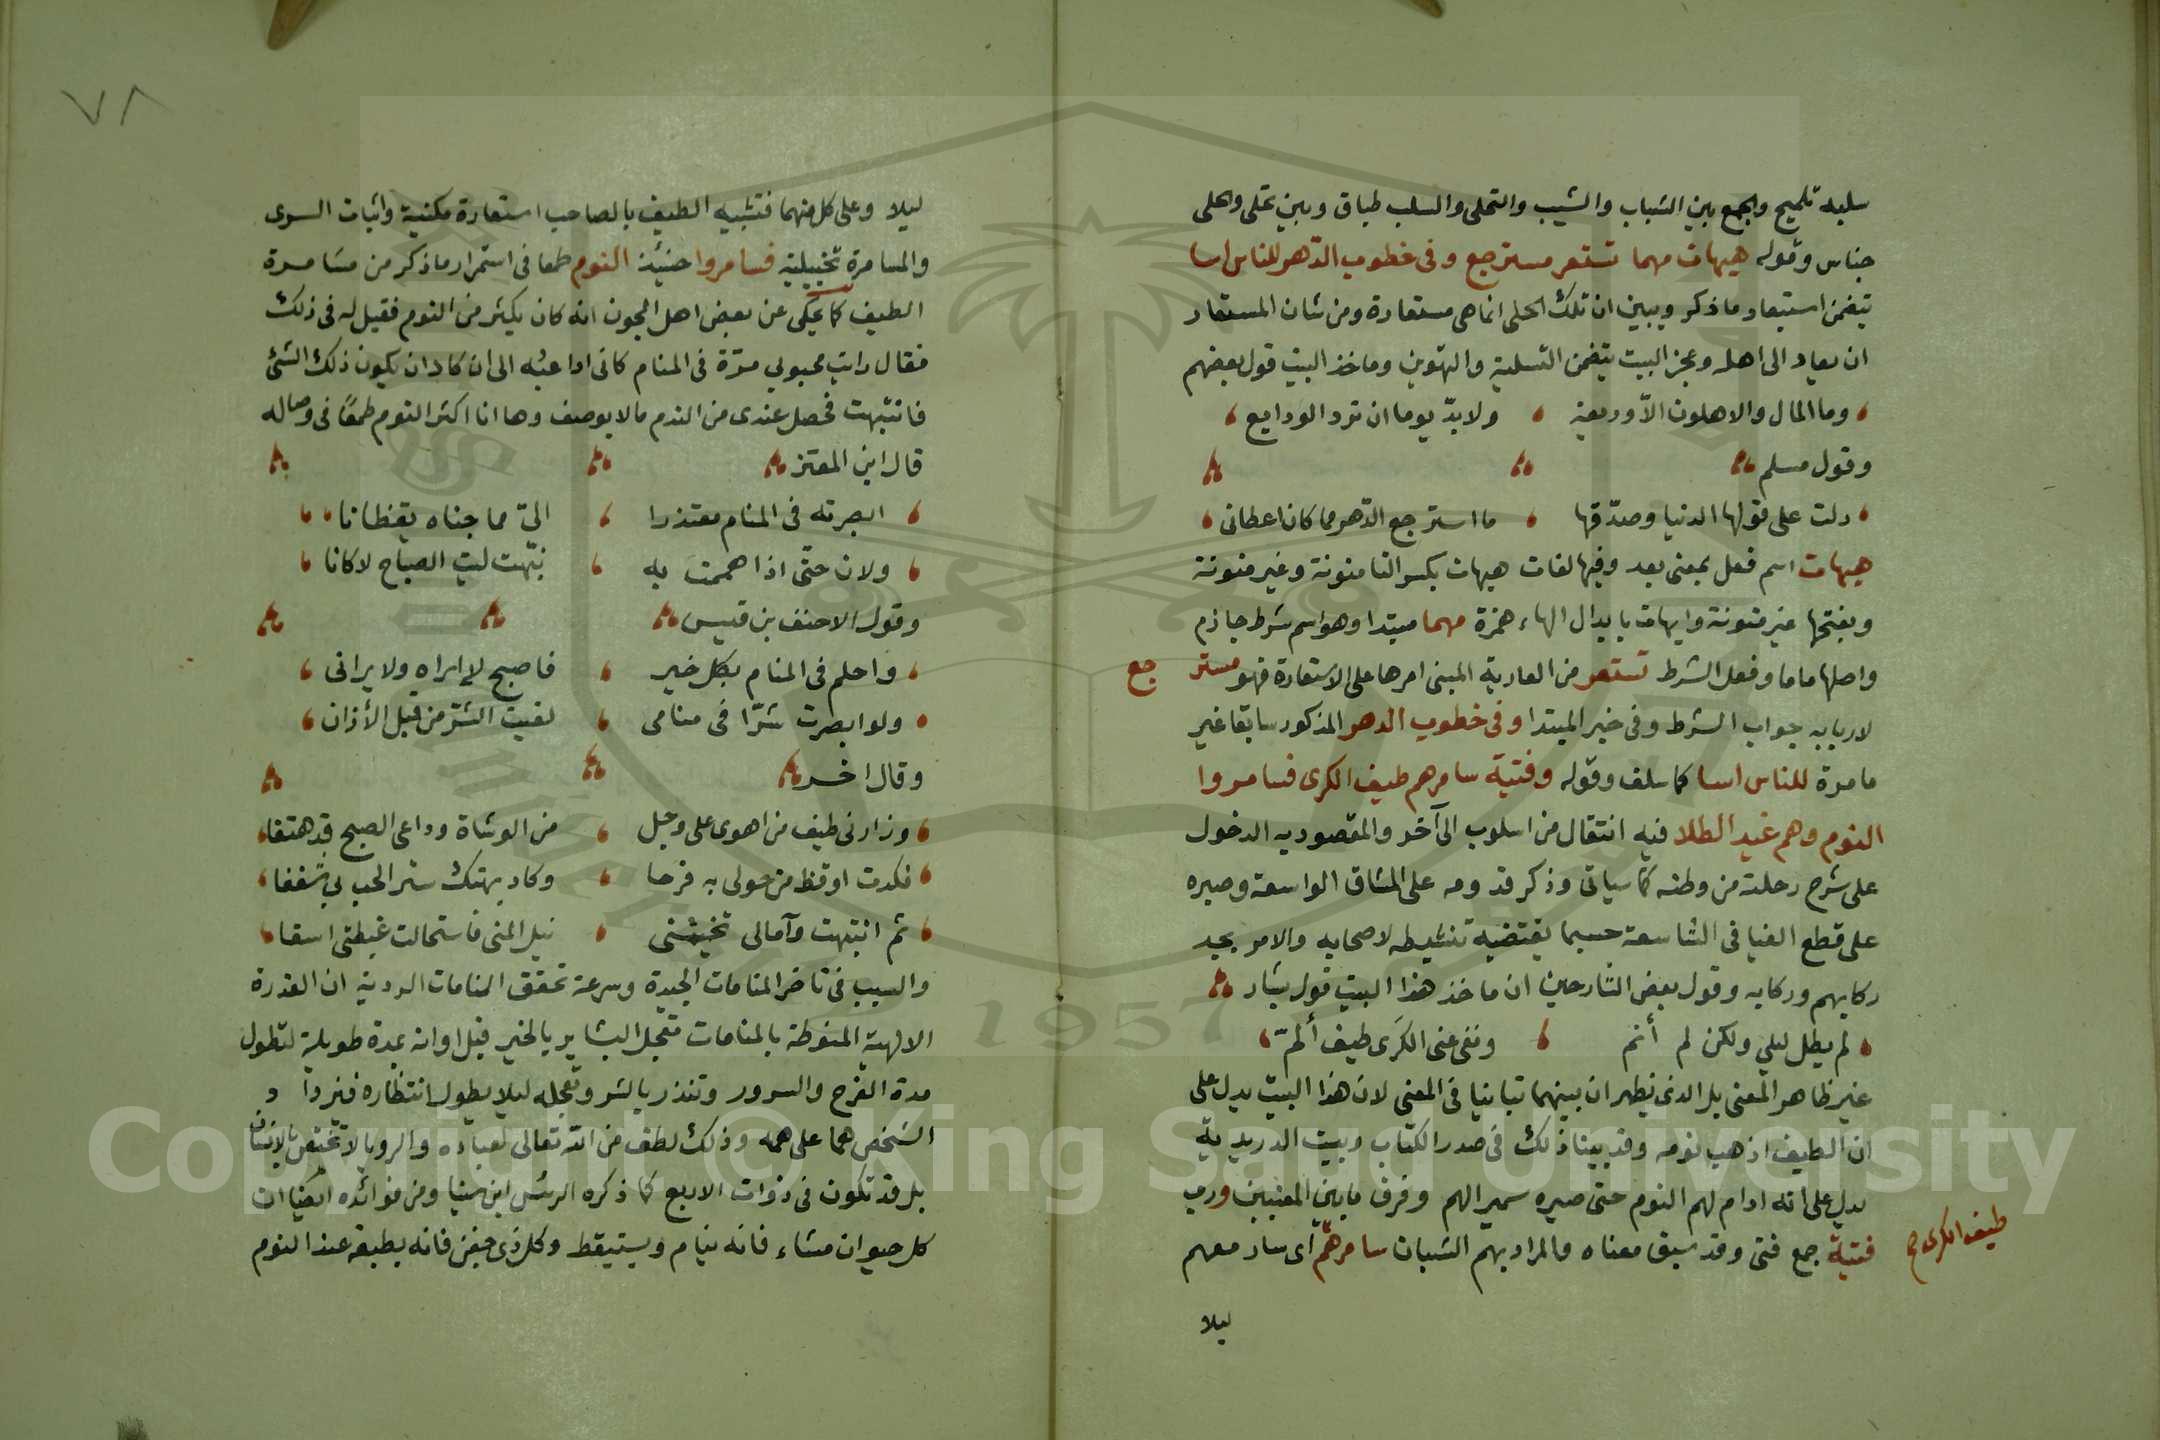 سلبه تلميح والجمع بين الشباب والشيب والتحلى والسلب طباق وبين تحلى والحلى
جناس وقوله هيهات مهما تستعر مسترجع وفى خطوب الدهر للناس اسا
تتضمن استبعاد ما ذكر ويبين ان تلك الحلى انما هى مستعارة ومن شان المستعار
ان يعاد الى اهله وعجز البيت يتضمن التسلية والتهوين وماخذ البيت قول بعضهم
وما المال والاهلون الاّ وديعة ولا بدّ يوما ان ترد الودايع
وقول مسلم
دلت على قولها الدنيا وصدّقها ما استرجع الدهر مما كان اعطانى
هيهات اسم فعل بمعنى بعد وفيها لغات هيهات بكسر التا منونة وغير منونة
وبفتحها غير منونة وايهات بابدال الهاء همزة مهما مبتدا وهو اسم شرط جازم
واصلها ماما وفعل الشرط تستعر من العارية المبنى امرها على الاستعارة فهو مسترجع
لاربابه جواب الشرط وفى خبر المبتدا وفى خطوب الدهر المذكور سابقا غير
ما مرة للناس اسا كما سلف وقوله وفتية سامرهم طيف الكرى فسامروا
النوم وهم غيد الطلا فيه انتقال من اسلوب الى آخر والمقصود به الدخول
على شرح رحلته من وطنه كما سياتى وذكر قدومه على المشاق الواسعة وصبره
على قطع الفيافى الشاسعة حسبما يقتضيه تنشيطه لاصحابه والامر بجد
ركابهم وركابه وقول بعض الشارحين ان ماخذ هذا البيت قول بشار
لم يطل ليلي ولكن لم أنم ونفى عنى الكرَى طيف ألمّ
غير ظاهر المعنى بل الذى يظهر ان بينهما تباينا فى المعنى لان هذا البيت يدل على
ان الطيف اذهب نومه وقد بينا ذلك فى صدر الكتاب وبيت الدريدية
يدل على انه ادام لهم النوم حتى صيره سميرا لهم وفرق ما بين المعنيين ورب
فتية جمع فتى وقد سبق معناه والمراد بهم الشبان سامرهم اى سار معهم
طيف الكرى صح
ليلا
٧٨
ليلا وعلى كل منهما فتشبيه الطيف بالصاحب استعارة مكنية واثبات السرى
والمسامرة تخييلية فسامروا حينئذ النوم طمعا فى استمرار ما ذكر من مسامرة
الطيف كما يحكى عن بعض اهل المجون انه كان يكثر من النوم فقيل له فى ذلك
فقال رايت محبوبي مرّة فى المنام كانى اداعبُه الى ان كاد ان يكون ذلك الشئ
فانتبهت فحصل عندى من الندم ما لا يوصف وها انا اكثر النوم طمعًا فى وصاله
قال ابن المعتز
ابصرته فى المنام معتذرا اليّ مما جناه يقظانا
ولان حتّى اذا هممت به نبّهت ليت الصباح لا كانا
وقول الاحنف بن قيس
واحلم فى المنام بكل خير فاصبح لا اراه ولا يرانى
ولو ابصرت شرّا فى منامى لقيت الشرّ من قبل الأذان
وقال اخر
وزارنى طيف من اهوى على وجل من الوشاة وداعى الصبح قد هتفا
فكدت اوقظ من حولى به فرحا وكاد يهتك ستر الحب بى شغفا
ثم انتبهت وآمالى تخيّل لى نيل المنى فاستحالت غبطتى اسفا
والسبب فى تاخر المنامات الجيدة وسرعة تحقق المنامات الردية ان القدرة
الالهية المنوطة بالمنامات تعجل البشاير بالخير قبل اوانه بمدة طويلة لتطول
مدة الفرح والسرور وتنذر بالشر وتعجله ليلا يطول انتظاره فيزداد
الشخص هما على همه وذلك لطف من الله تعالى لعباده والرويا لا تختص بالانسان
بل قد تكون فى ذوات الاربع كما ذكره الرئس ابن سينا ومن فوائده ان
كل حيوان مشاء فانه ينام ويستيقظ وكل ذى جفن فانه يطبقه عند النوم
Copyright © King Saud University
1957